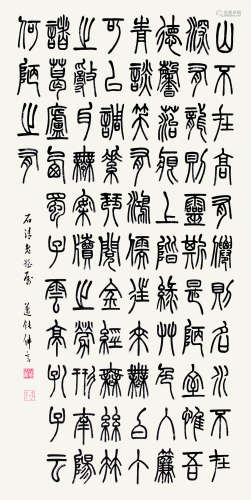 山不在高有仙則名水不在
深有龍則靈斯是陋室惟吾
德馨苔痕上階綠艸色入簾
青談笑有鴻儒往來無白丁
可以調素琴閱金經無絲竹
之亂耳無案牘之勞形南陽
諸葛廬西蜀子雲亭孔子云
何陋之有
石清老屬 邁鈍佛言